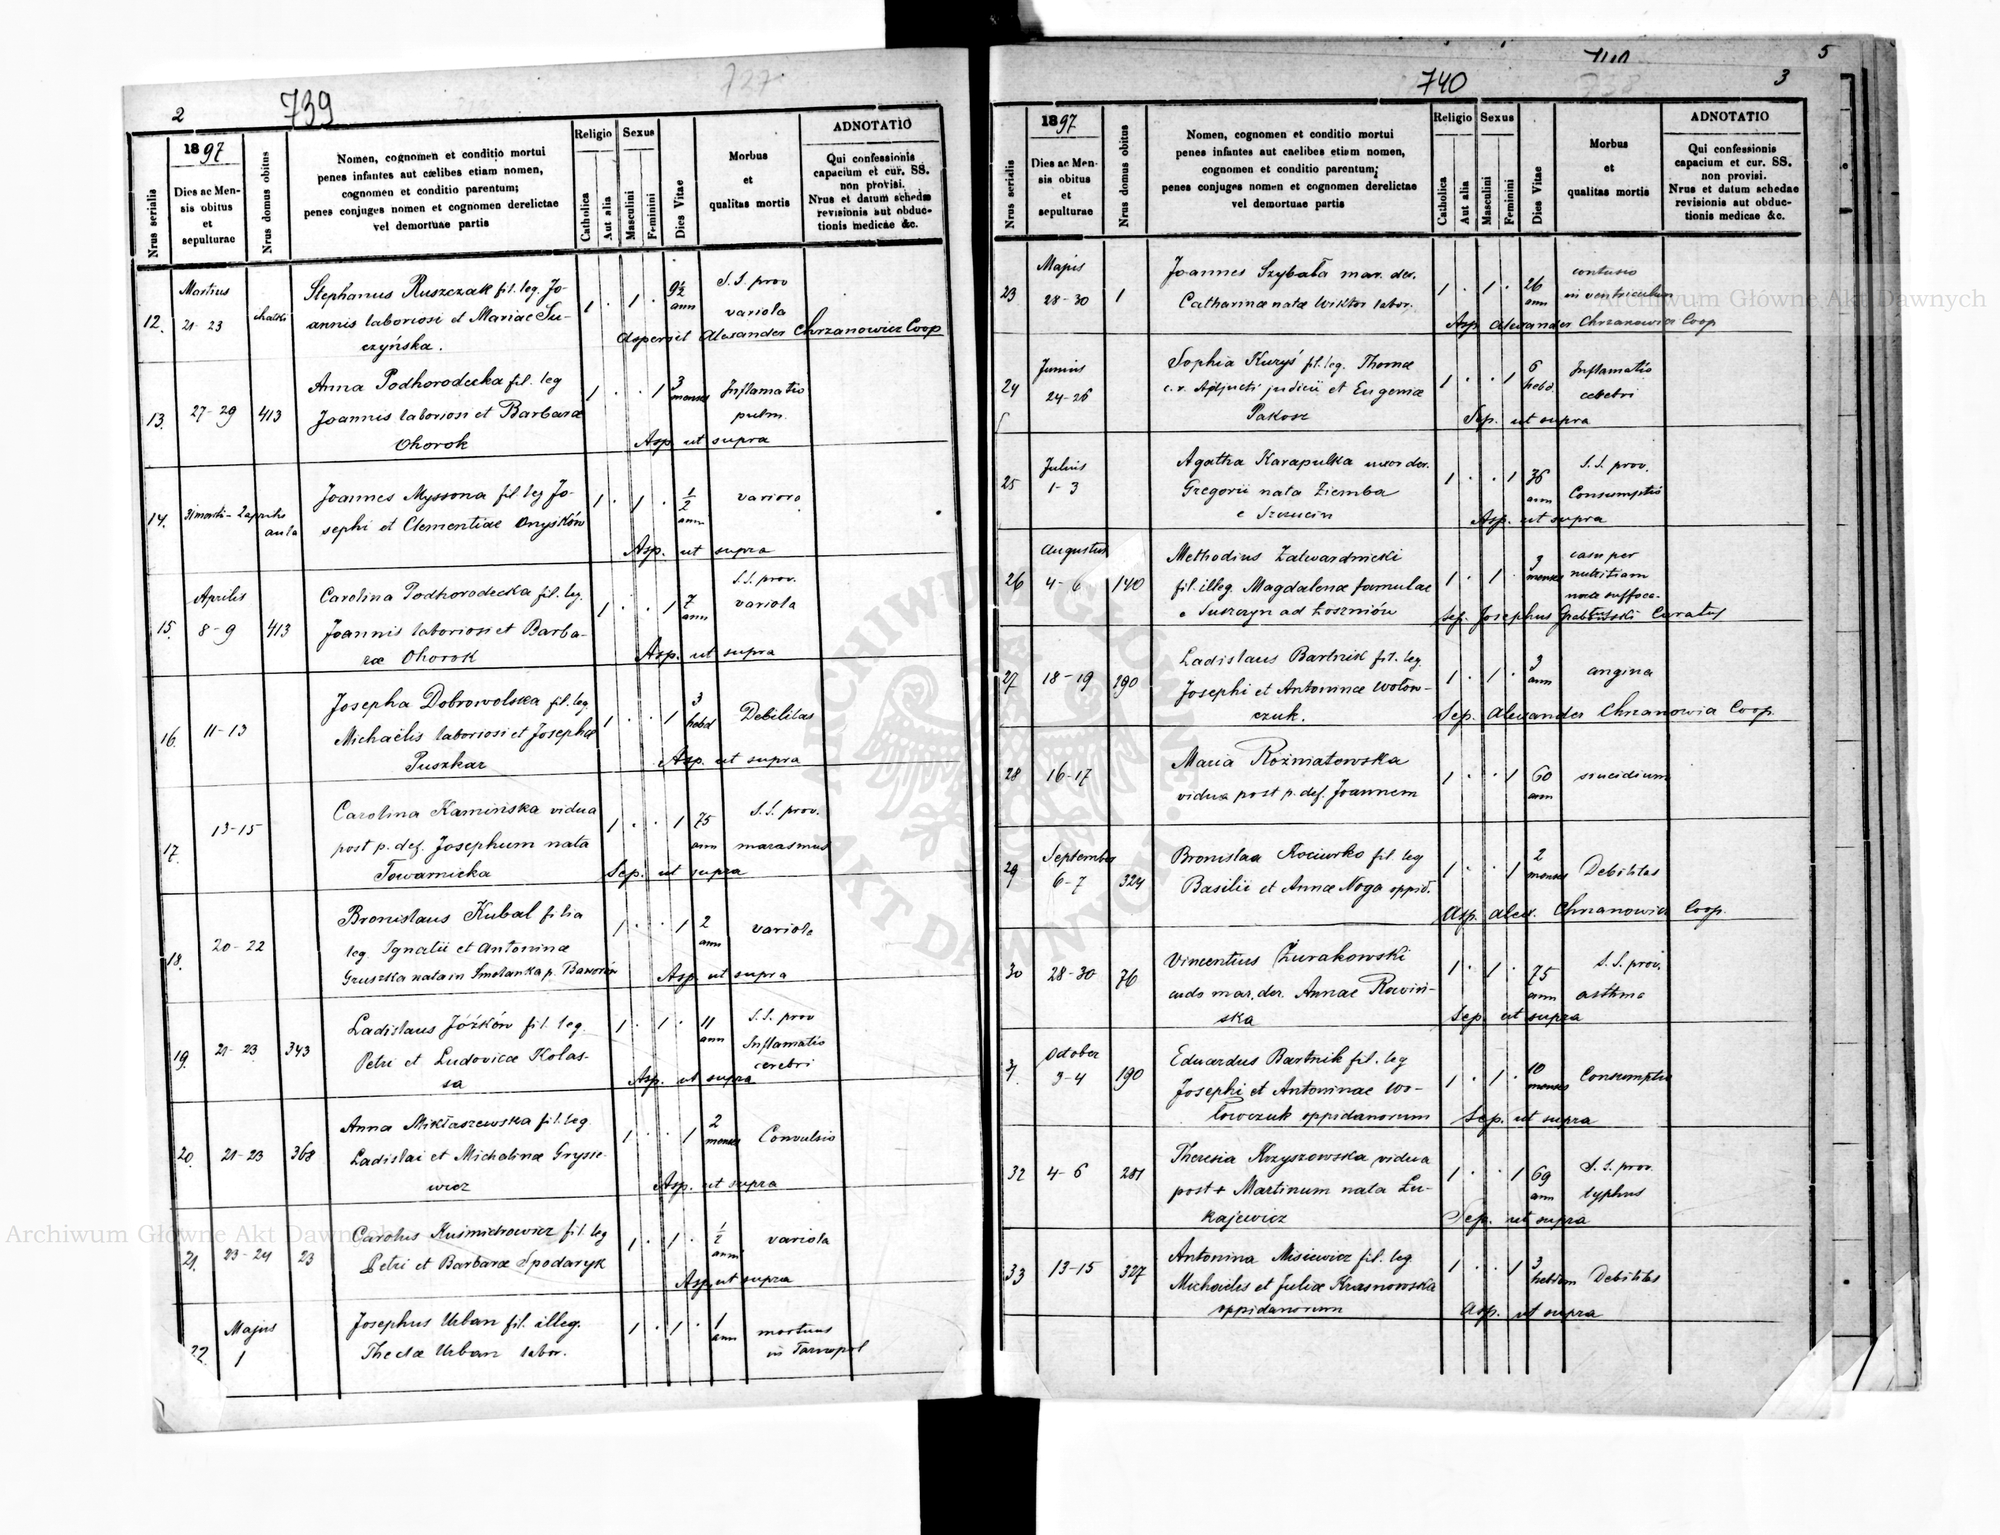 2
739
727
Nrus serialis
1897
Dies ac Mensis obitus et sepulturae
Nrus domus obitus
Nomen, cognomen et conditio mortui
penes infantes aut cælibes etiam nomen,
cognomen et conditio parentum;
penes conjuges nomen et cognomen derelictae
vel demortuae partis
Religio
Catholica
Aut alia
Sexus
Masculini
Feminini
Dies Vitae
Morbus
et
qualitas mortis
ADNOTATIO
Qui confessionis
capacium et cur. SS.
non provisi.
Nrus et datum schedæ
revisionis aut obduc-
tionis medicae &c.
Martius
12. 21-23 chatki
Stephanus Ruszczak fil. leg. Jo-
annis laboriosi et Mariae Su-
czyńska.
1 . 1 . 9½ ann
S.S. prov
variola
Aspersit Alexander Chrzanowicz Coop
13. 27-29 413
Anna Podhorodecka fil. leg
Joannis laboriosi et Barbaræ
Ohorok
1 . . 1 3 menses
Inflamatio
pulm.
Asp. ut supra
14. 31 martii - 2 aprilis
Joannes Myssona fil leg Jo-
sephi et Clementiae Onyśków
1 . 1 . ½ ann
Asp. ut supra
Aprilis
15. 8-9 413
Carolina Podhorodecka fil. leg.
Joannis laboriosi et Barba-
ræ Ohorok
1 . . 1 7 ann
S.S. prov.
variola
Asp. ut supra
16. 11-13
Josepha Dobrowolska fil. leg.
Michaëlis laboriosi et Josephæ
Puszkar
1 . . 1 3 hebd
Debilitas
Asp. ut supra
17. 13-15
Carolina Kamińska vidua
post p. def. Josephum nata
Towarnicka
1 . . 1 75 ann
S.S. prov.
marasmus
Sep. ut supra
18. 20-22
Bronislaus Kubal filia
leg. Ignatii et Antoninæ
Gruszka nata in Smolanka p.
1 . . 1 2 ann
variola
Asp. ut supra
19. 21-23 343
Ladislaus Józków fil. leg.
Petri et Ludovicæ Kolas-
sa
1 . 1 . 11 ann
S.S. prov
Inflamatio
cerebri
Asp. ut supra
20. 21-23 368
Anna Mikłaszewska fil. leg.
Ladislai et Michalinæ Grysie-
wicz
1 . . 1 2 menses
Convulsio
Asp. ut supra
21. 23-24 23
Carolus Kuśmidrowicz fil. leg
Petri et Barbaræ Spodaryk
1 . 1 . ½ ann
variola
Asp. ut supra
Majus
22. 1
Josephus Urban fil. illeg.
Theclæ Urban labor.
1 . 1 . 1 ann
mortuus
in Tarnopol
5
740
3
Nrus serialis
1897
Dies ac Mensis obitus et sepulturae
Nrus domus obitus
Nomen, cognomen et conditio mortui
penes infantes aut caelibes etiam nomen,
cognomen et conditio parentum;
penes conjuges nomen et cognomen derelictae
vel demortuae partis
Religio
Catholica
Aut alia
Sexus
Masculini
Feminini
Dies Vitae
Morbus
et
qualitas mortis
ADNOTATIO
Qui confessionis
capacium et cur. SS.
non provisi.
Nrus et datum schedae
revisionis aut obduc-
tionis medicae &c.
Majus
23 28-30 1
Joannes Szybała mar. der.
Catharinæ natæ Wiktor labor.
1 . 1 . 26 ann
contusio
in ventriculum
Asp Alexander Chrzanowicz Coop
Junius
24 24-26
Sophia Kuryś fil. leg. Thomæ
c.r. Adjuncti judicii et Eugeniæ
Pakosz
1 . . 1 6 hebd.
Inflamatio
cerebri
Sep. ut supra
Julius
25 1-3
Agatha Karapulka uxor der.
Gregorii nata Ziemba
e Szczucin
1 . . 1 36 ann
S.S. prov.
Consumptio
Asp. ut supra
Augustus
26 4-6 140
Methodius Zatwardnicki
fil. illeg. Magdalenæ famulae
e Suszczyn ad Łoszniów
1 . 1 . 3 menses
casu per
nutritiam
Sep. Josephus Curatus
27 18-19 190
Ladislaus Bartnik fil. leg.
Josephi et Antoninæ Wołow-
czuk.
1 . 1 . 3 ann
angina
Sep. Alexander Chrzanowicz Coop.
28 16-17
Maria Rożniatowska
vidua post p. def. Joannem
1 . . 1 60 ann
suicidium
September
29 6-7 324
Bronislaa Kociurko fil. leg
Basilii et Annæ Noga oppid.
1 . . 1 2 menses
Debilitas
Asp. Alex. Chrzanowicz Coop.
30 28-30 76
Vincentius Żurakowski
mar. der. Annae Rawiń-
ska
1 . 1 . 75 ann
S.S. prov.
asthma
Sep. ut supra
October
31. 3-4 190
Eduardus Bartnik fil. leg
Josephi et Antoninae Wo-
łowczuk oppidanorum
1 . 1 . 10 menses
Consumptio
Sep. ut supra
32 4-6 281
Theresia Krzyszowska vidua
post + Martinum nata Łu-
kajewicz
1 . . 1 69 ann
S.S. prov.
typhus
Sep. ut supra
33 13-15 327
Antonina Misiewicz fil. leg.
Michaëlis et Juliæ Krasnowska
oppidanorum
1 . . 1 3 hebdom
Debilitas
Asp. ut supra
Archiwum Główne Akt Dawnych
Archiwum Główne Akt Dawnych
ARCHIWUM GŁÓWNE AKT DAWNYCH